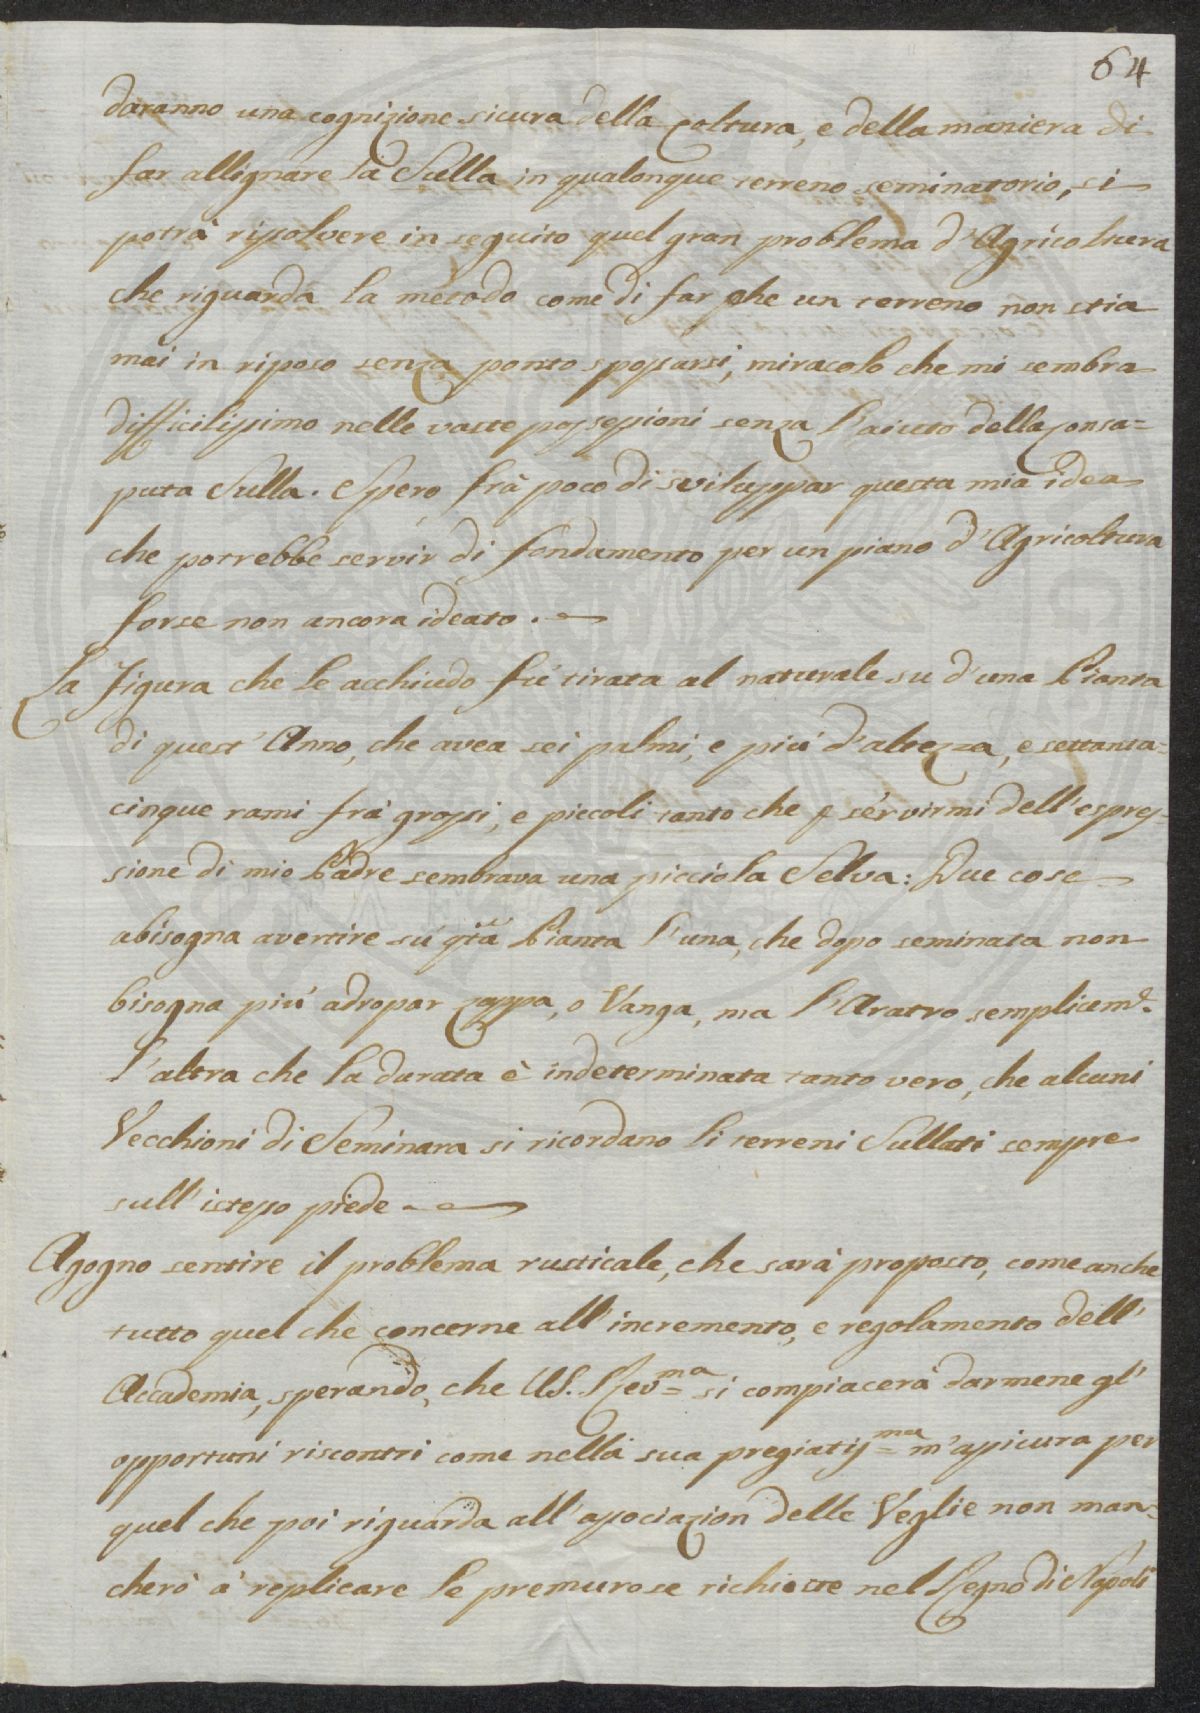 64
daranno una cognizione sicura della coltura, e della maniera di
far allignare la Sulla in qualonque terreno seminatorio, si
potrà risolvere in seguito quel gran problema d'Agricoltura
che riguarda la metodo come di far che un terreno non stia
mai in riposo senza ponto spossarsi, miracolo che mi sembra
difficilissimo nelle vaste possessioni senza l'aiuto della consa=
puta Sulla. Spero frà poco di sviluppar questa mia idea
che potrebbe servir di fondamento per un piano d'Agricoltura
forse non ancora ideato.
La figura che le acchiudo fú tirata al naturale su d'una Pianta
di quest'Anno, che avea sei palmi, e piú d'altezza, e settanta=
cinque rami frà grossi, e piccoli tanto che p servirmi dell'espres=
sione di mio Padre sembrava una picciola Selva: Due cose
abisogna avertire sú qtà Pianta l'una, che dopo seminata non
bisogna piú adropar zappa, o Vanga, ma l'Aratro semplicemte.
l'altra che la durata è indeterminata tanto vero, che alcuni
Vecchioni di Seminara si ricordano li terreni Sullati sempre
sull'istesso piede
Agogno sentire il problema rusticale, che sarà proposto, come anche
tutto quel che concerne all'incremento, e regolamento dell'
Accademia, sperando, che US. Revma si compiacerà darmene gl'
opportuni riscontri come nella sua pregiatissma m'assicura per
quel che poi riguarda all'associazion delle Veglie non man=
cherò à replicare le premurose richieste nel Regno di Napoli